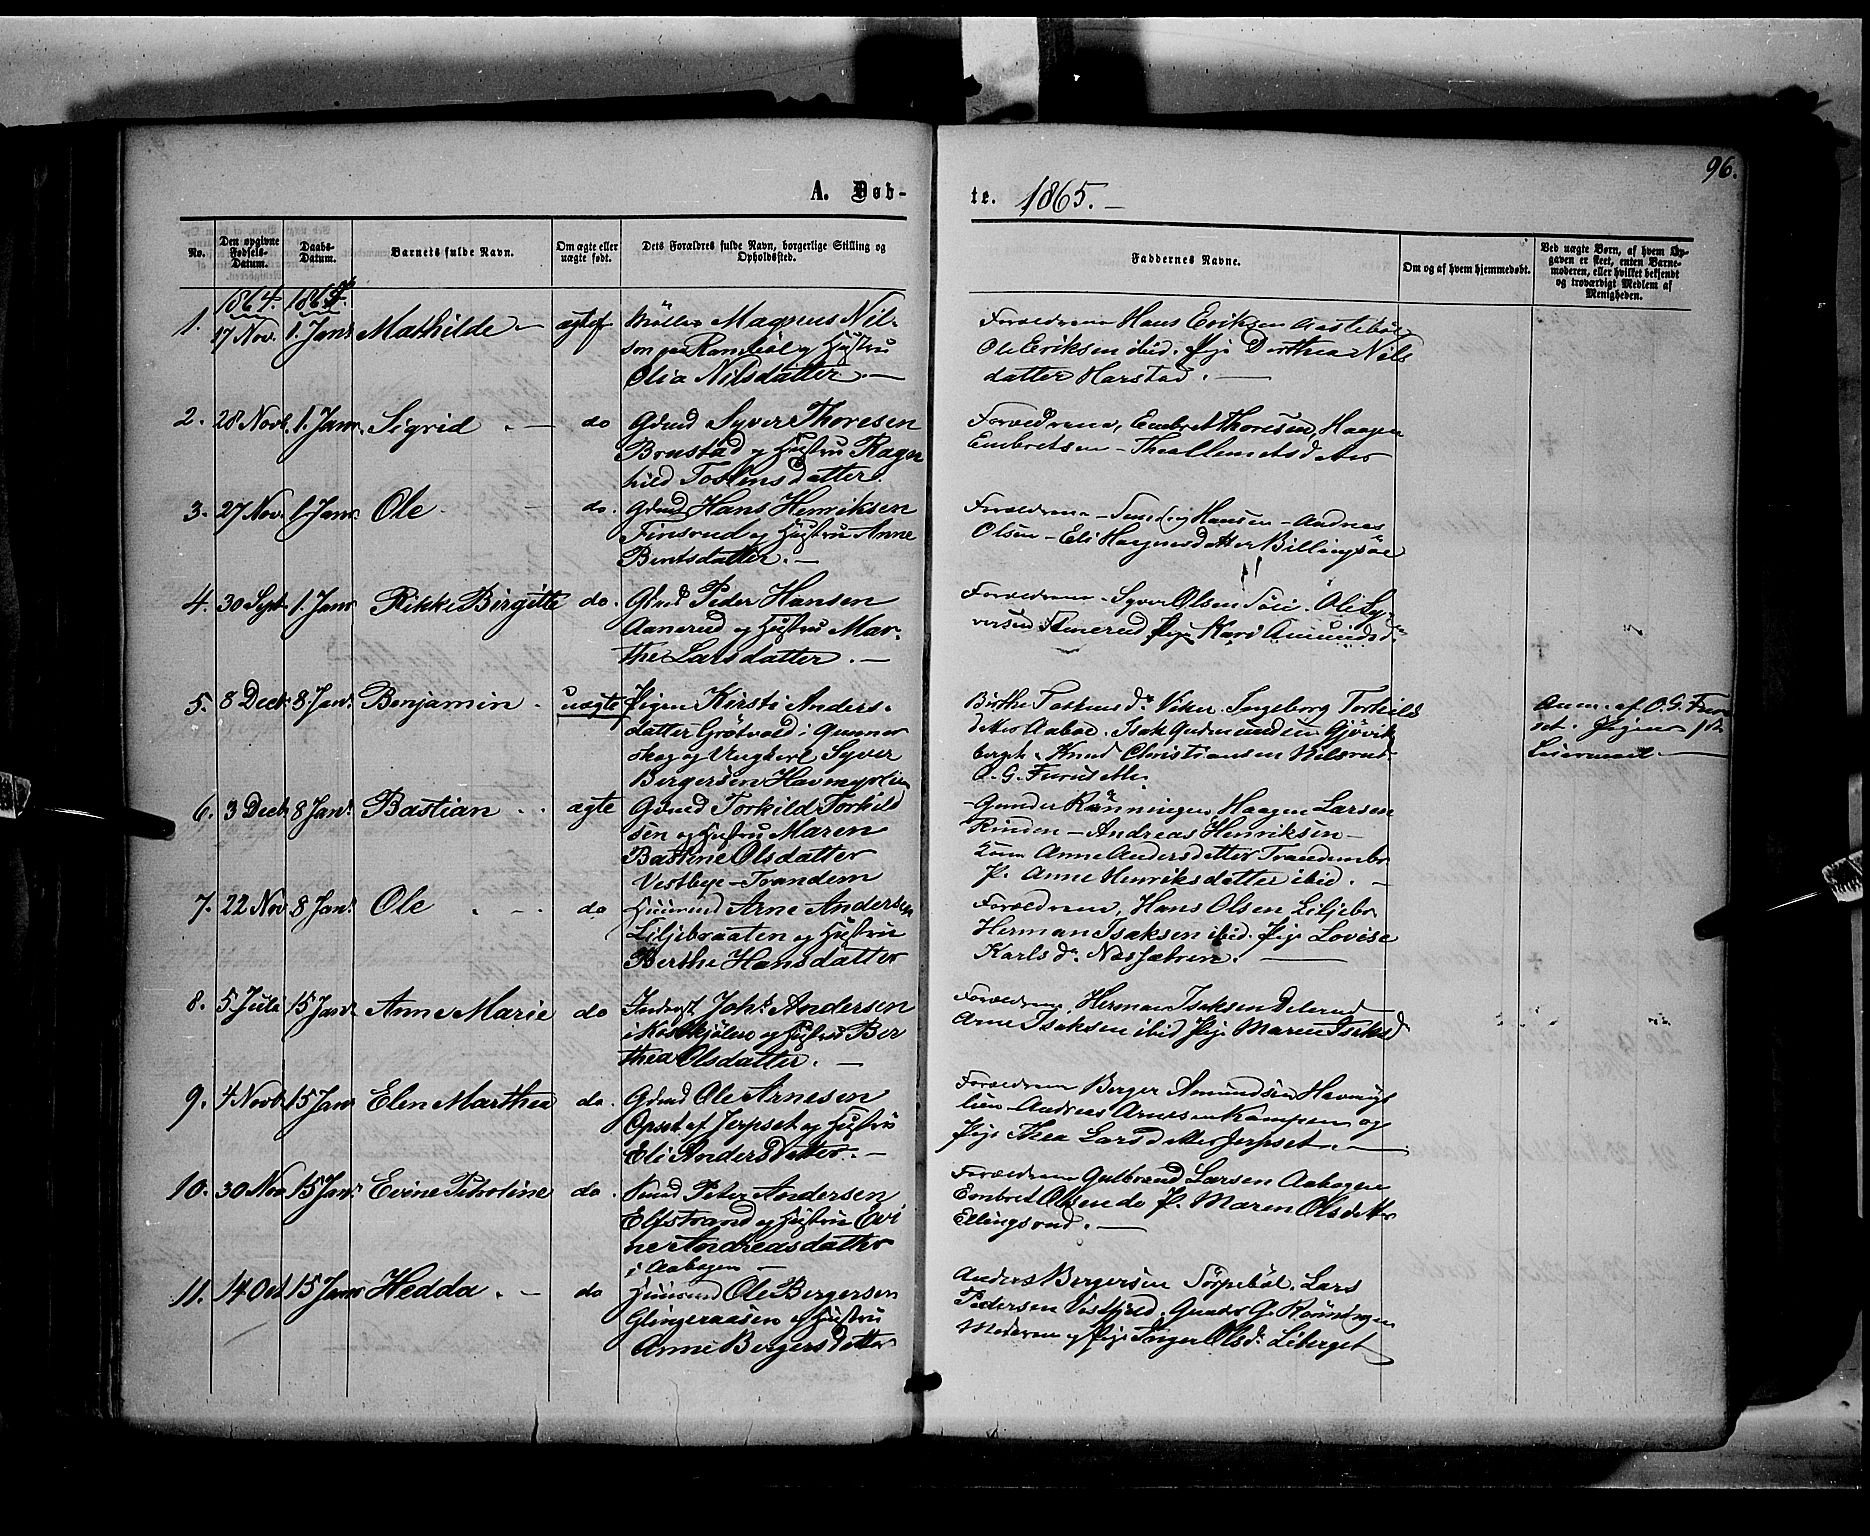 96.
A. Døb-
te. 1865.-
No.
Den opgivne Fødsels-Datum.
Daabs-Datum.
Barnets fulde Navn.
Om ægte eller uægte født.
Dets Forældres fulde Navn, borgerlige Stilling og Opholdssted.
Faddernes Navne.
Om og af hvem hjemmedøbt.
Ved uægte Børn, af hvem Op-
gaven er skeet, enten Barne-
moderen, eller hvilket bekjendt
og troværdigt Medlem af
Menigheden.
1864. 1865.
1. 17 Nov. 1. Janr Mathilde - ægte Møller Magnus Nil-
sen paa Rambøl og Hustru
Olia Nilsdatter. -
Forældrene Hans Eriksen Aastebøl
Ole Eriksen ibid. Pige Dorthea Nils
datter Harstad. -
2. 28 Novb. 1. Janr. Sigrid . - do Gdmd Syver Thoresen
Brustad og Hustru Ragn
hild Tostensdatter.
Forældrene, Embret Thoresen, Haagen
Embretsen - Thea
3. 27 Nov. 1 Janr. Ole - do. Gdmd Hans Henriksen
Finsrud og Hustru Anne
Berntsdatter. -
Forældrene - Hansen - Andreas
Olsen - Eli Haagensdatter Billingsøe
4. 30 Sept 1. Janr Rikke Birgitte do. Gdmd Peder Hansen
Aanerud og Hustru Mar-
the Larsdatter. -
Forældrene - Syver Olsen Ole Sy-
versen Pige Kari Amundsd.
5. 8 Decb. 8 Janr. Benjamin . uægte Pigen Kirsti Anders-
datter Grøtvold i Gunner
skog og Ungkarl Syver
Bergersen Havmyrlien
Birthe Tostensd. Viker. Ingeborg Torkilds
datter Aaboe. Isak Gudmundsen Gjøvik
bergt. Knud Christiansen
O. G. Furusette.
Anm. af O. G. Furu
set. Pigen 1ste
Leiermaal. -
6. 3 Decb. 8 Janr. Bastian . . ægte Gdmd Torkild Torkild
sen og Hustru Maren
Bastine Olsdatter
Vestbye-Trandem
Gunder Rønningen, Haagen Larsen
Rinden - Andreas Henriksen -
Kone Anne Andersdatter Trandembr
P. Anne Henriksdatter ibid. -
7. 22 Nov 8 Janr. Ole . - . do Huusmd Arne Andersen
Liljebraaten og Hustru
Berthe Hansdatter
Forældrene, Hans Olsen Liljebr
Herman Isaksen ibid. Pige Lovise
Karlsd. Næssætren. -
8. 5 Juli 15 Janr. Anne Marie do Inderst Johs. Andersen
i og Hustru Ber
thea Olsdatter. -
Forældrene, Herman Isaksen Delerud
Arne Isaksen ibid Pige Maren Isaksd
9. 4 Novb. 15 Janr Elen Marthea do. Gdmd Ole Arnesen
Opset af Jerpset og Hustru
Eli Andersdatter. -
Forældrene Berger Amundsen Havmyr
lien - Andreas Arnesen Kampen og
Pige Thea Larsdatter Jerpset. -
10. 30 Nov 15 Janr. Evine Petroline do. Peter Andersen
Elfstrand og Hustru Evi
ne Andreasdatter
i Aabogen -
Forældrene Gulbrand Larsen Aabogen
Embret Olsen do P. Maren Olsdatter
Ellingsrud. -
11. 14 Oct 15 Janr Hedda . - do Huusmd Ole Bergersen
Glingeraasen og Hustru
Anne Bergersdatter
Anders Bergersen Sørpebøl. Lars
Pedersen Gunder G. Rønningen
Moderen og Pige Inger Olsd. Liberget